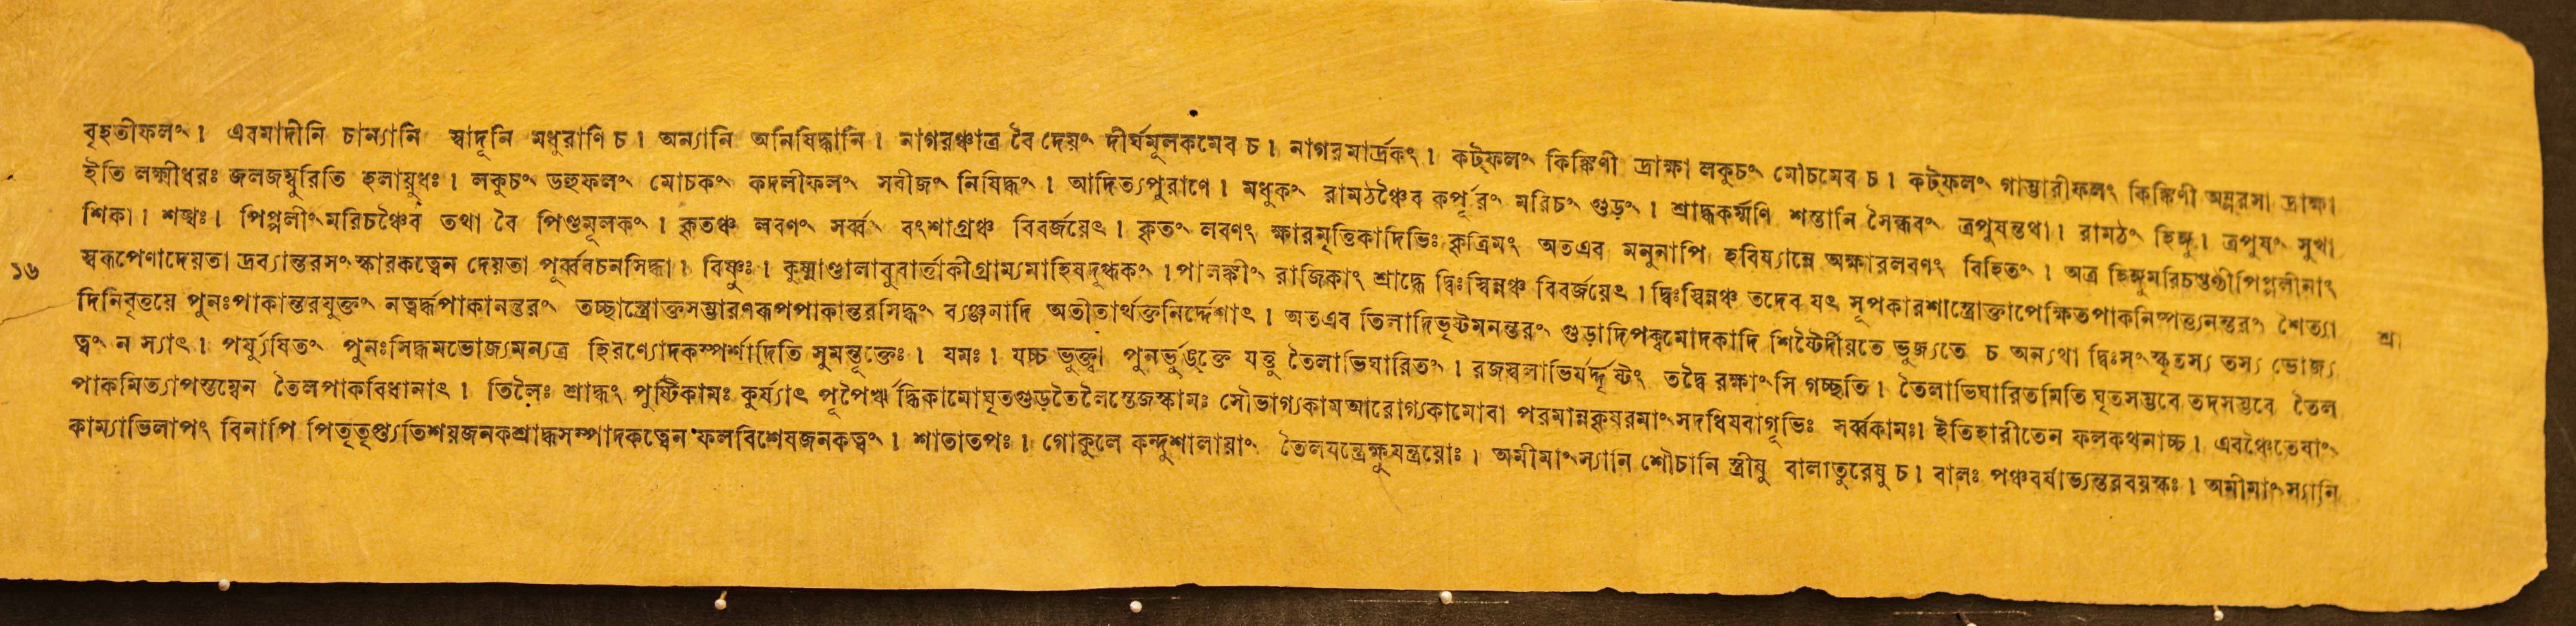 বৃহতীফলং। এবমাদীনি চান্যানি স্বাদূনি মধুরাণি চ। অন্যানি অনিষিদ্ধানি। নাগরঞ্চাত্র বৈ দেয়ং দীর্ঘমূলকমেব চ। নাগরমার্দ্রকং। কট্ফলং কিঙ্কিণী দ্রাক্ষা লকুচং মোচমেব চ। কট্ফলং গাম্ভারীফলং কিঙ্কিণী অম্লরসা দ্রাক্ষা
ইতি লক্ষ্মীধরঃ জলজম্বুরিতি হলায়ুধঃ। লকুচং ডহুফলং মোচকং কদলীফলং সবীজং নিষিদ্ধং। আদিত্যপুরাণে। মধুকং রামঠঞ্চৈব কর্পূরং মরিচং গুড়ং। শ্রাদ্ধকর্ম্মণি শস্তানি সৈন্ধবং ত্রপুষন্তথা। রামঠং হিঙ্গু। ত্রপুষং সুখা
শিকা। শঙ্খঃ। পিপ্পলীং মরিচঞ্চৈব তথা বৈ পিণ্ডমূলকং। কৃতঞ্চ লবণং সর্ব্বং বংশাগ্রঞ্চ বিবর্জয়েৎ। কৃতং লবণং ক্ষারমৃত্তিকাদিভিঃ কৃত্রিমং অতএব মনুনাপি হবিষ্যান্নে অক্ষারলবণং বিহিতং। অত্র হিঙ্গুমরিচশুণ্ঠীপিপ্পলীনাং
১৬ স্বরূপেণাদেয়তা দ্রব্যান্তরসংস্কারকত্বেন দেয়তা পূর্ব্ববচনসিদ্ধা। বিষ্ণুঃ। কুষ্মাণ্ডালাবুবার্ত্তাকীগ্রাম্যমাহিষদুগ্ধকং। পালঙ্কীং রাজিকাং শ্রাদ্ধে দ্বিঃস্বিন্নঞ্চ বিবর্জয়েৎ। দ্বিঃস্বিন্নঞ্চ তদেব যৎ সূপকারশাস্ত্রোক্তাপেক্ষিতপাকনিষ্পত্ত্যনন্তরং শৈত্যা
দিনিবৃত্তয়ে পুনঃপাকান্তরযুক্তং নত্বর্দ্ধপাকানন্তরং তচ্ছাস্ত্রোক্তসম্ভারণরূপপাকান্তরসিদ্ধং ব্যঞ্জনাদি অতীতার্থক্তনির্দ্দেশাৎ। অতএব তিলাদিভৃষ্টমনন্তরং গুড়াদিপক্বমোদকাদি শিষ্টৈর্দীয়তে ভুজ্যতে চ অন্যথা দ্বিঃসংস্কৃতস্য তস্য ভোজ্য
শ্রা
ত্বং ন স্যাৎ। পর্য্যুষিতং পুনঃসিদ্ধমভোজ্যমন্যত্র হিরণ্যোদকস্পর্শাদিতি সুমন্তূক্তেঃ। যমঃ। যচ্চ ভুক্ত্বা পুনর্ভুঙ্ক্তে যত্তু তৈলাভিঘারিতং। রজস্বলাভির্যদ্দৃষ্টং তদ্বৈ রক্ষাংসি গচ্ছতি। তৈলাভিঘারিতমিতি ঘৃতসম্ভবে তদসম্ভবে তৈল
পাকমিত্যাপস্তম্বেন তৈলপাকবিধানাৎ। তিলৈঃ শ্রাদ্ধং পুষ্টিকামঃ কুর্য্যাৎ পূপৈরৃদ্ধিকামোঘৃতগুড়তৈলৈস্তেজস্কামঃ সৌভাগ্যকামআরোগ্যকামোবা পরমান্নকৃষরমাংসদধিযবাগূভিঃ সর্ব্বকামঃ। ইতিহারীতেন ফলকথনাচ্চ। এবঞ্চৈতেষাং
কাম্যাভিলাপং বিনাপি পিতৃতৃপ্ত্যতিশয়জনকশ্রাদ্ধসম্পাদকত্বেন ফলবিশেষজনকত্বং। শাতাতপঃ। গোকুলে কন্দুশালায়াং তৈলযন্ত্রেক্ষুযন্ত্রয়োঃ। অমীমাংস্যানি শৌচানি স্ত্রীষু বালাতুরেষু চ। বালঃ পঞ্চবর্ষাভ্যন্তরবয়স্কঃ। অমীমাংস্যানি